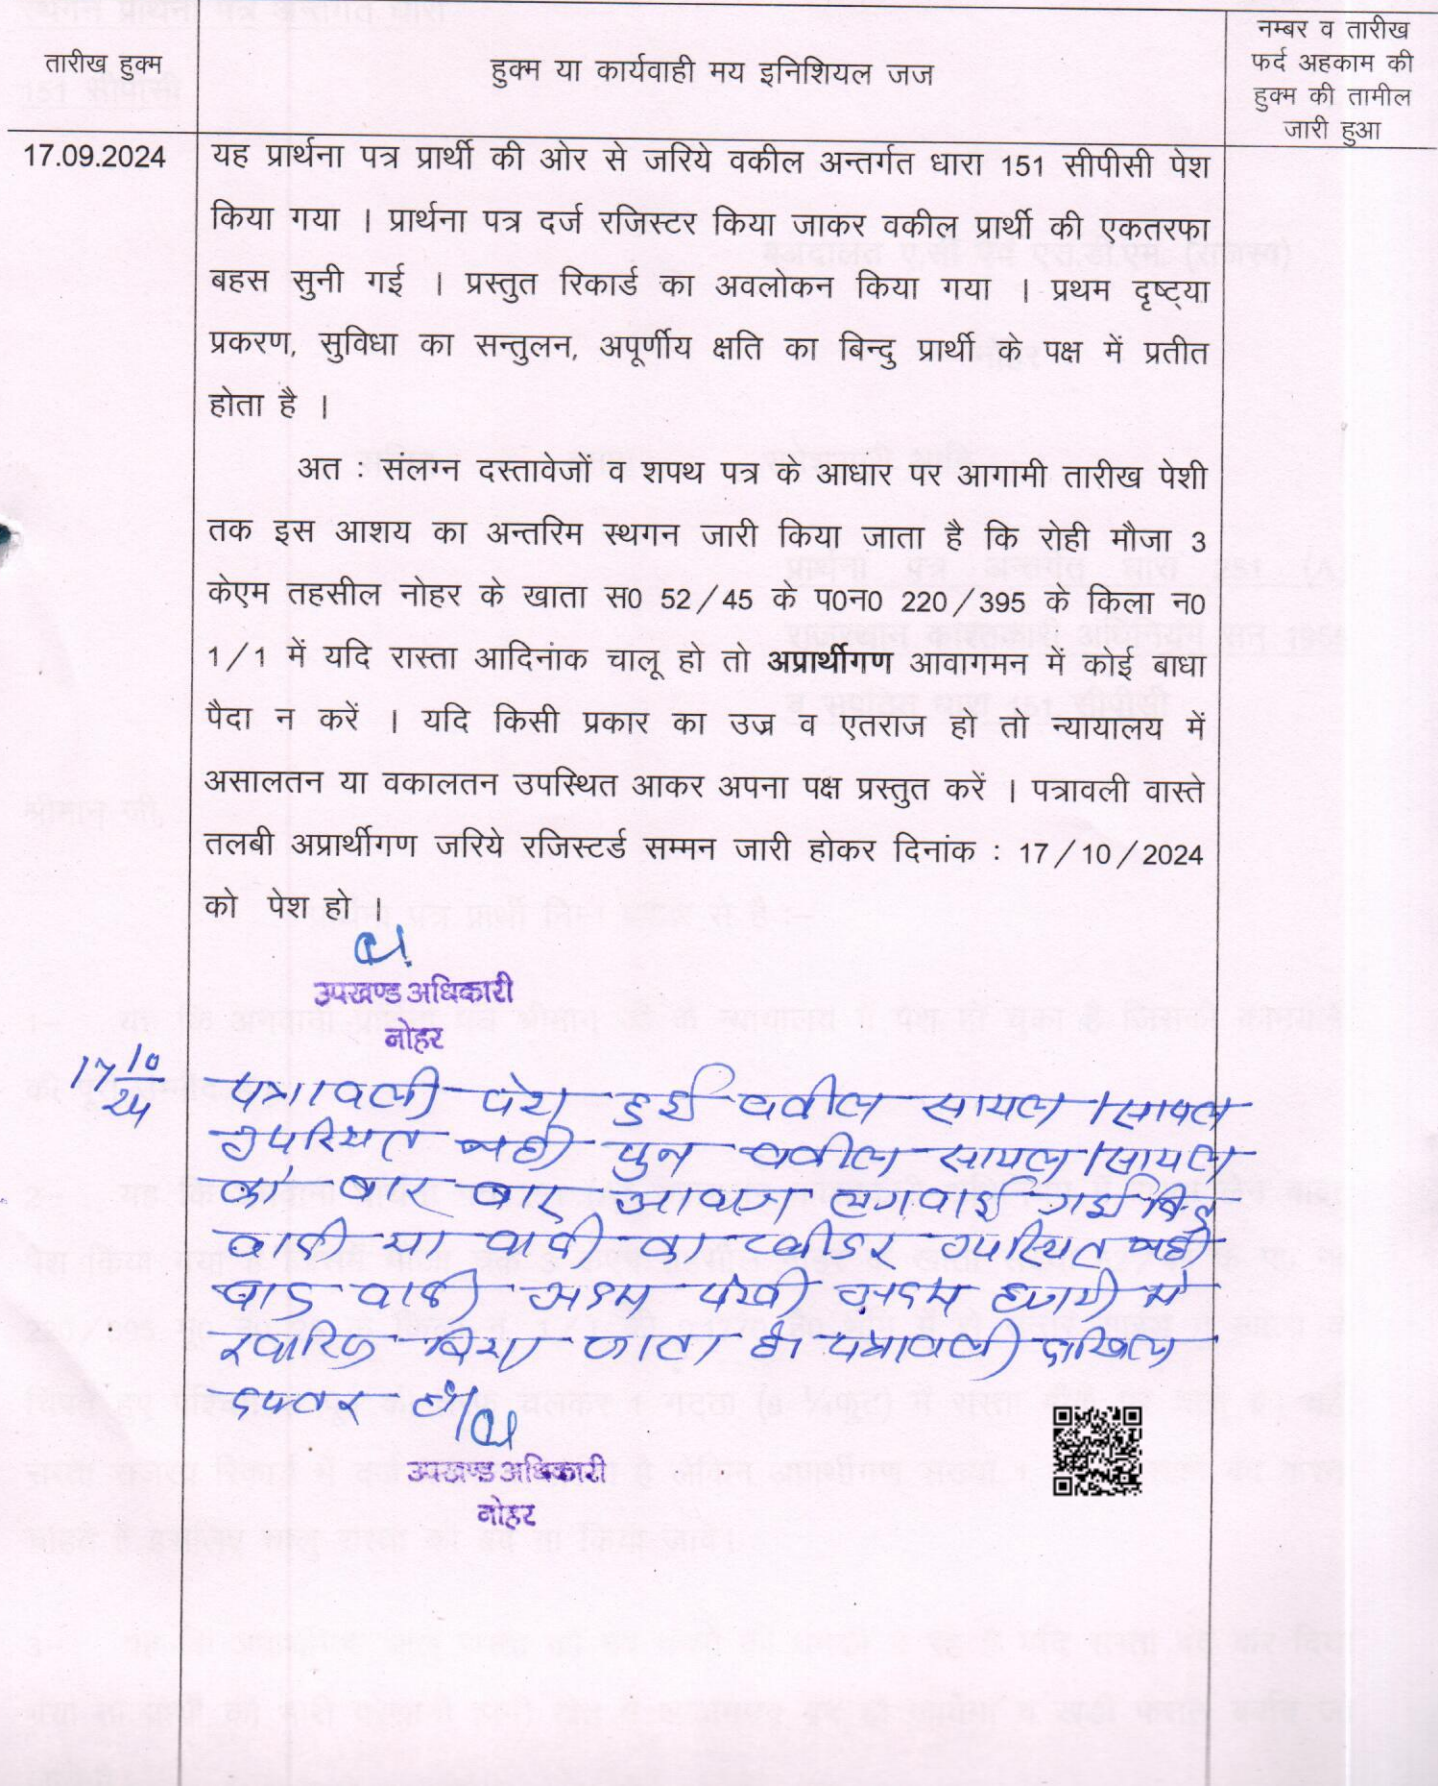 तारीख हुक्म
हुक्म या कार्यवाही मय इनिशियल जज
नम्बर व तारीख
फर्द अहकाम की
हुक्म की तामील
जारी हुआ
17.09.2024
यह प्रार्थना पत्र प्रार्थी की ओर से जरिये वकील अन्तर्गत धारा 151 सीपीसी पेश
किया गया । प्रार्थना पत्र दर्ज रजिस्टर किया जाकर वकील प्रार्थी की एकतरफा
बहस सुनी गई । प्रस्तुत रिकार्ड का अवलोकन किया गया । प्रथम दृष्ट्या
प्रकरण, सुविधा का सन्तुलन, अपूर्णीय क्षति का बिन्दु प्रार्थी के पक्ष में प्रतीत
होता है ।
अत : सलग्न दस्तावेजों व शपथ पत्र के आधार पर आगामी तारीख पेशी
तक इस आशय का अन्तरिम स्थगन जारी किया जाता है कि रोही मौजा 3
केएम तहसील नोहर के खाता स0 52/45 के प0न0 220/395 के किला न0
1/1 में यदि रास्ता आदिनांक चालू हो तो अप्रार्थीगण आवागमन में कोई बाधा
पैदा न करें । यदि किसी प्रकार का उज्र व एतराज हो तो न्यायालय में
असालतन या वकालतन उपस्थित आकर अपना पक्ष प्रस्तुत करें । पत्रावली वास्ते
तलबी अप्रार्थीगण जरिये रजिस्टर्ड सम्मन जारी होकर दिनांक : 17/10/2024
को पेश हो ।
उपखण्ड अधिकारी
नोहर
17/10/24
पत्रावली पेश हुई वकील सायल/सायल
उपस्थित नही पुन वकील सायल/सायल
को बार बार आवाज लगवाई गई किन्तु
वादी या वादी का प्लीडर उपस्थित नही
वाद वादी अदम पेरवी अदम हाजरी मे
खारिज किया जाता है। पत्रावली दाखिल
दफ्तर हो।
उपखण्ड अधिकारी
नोहर